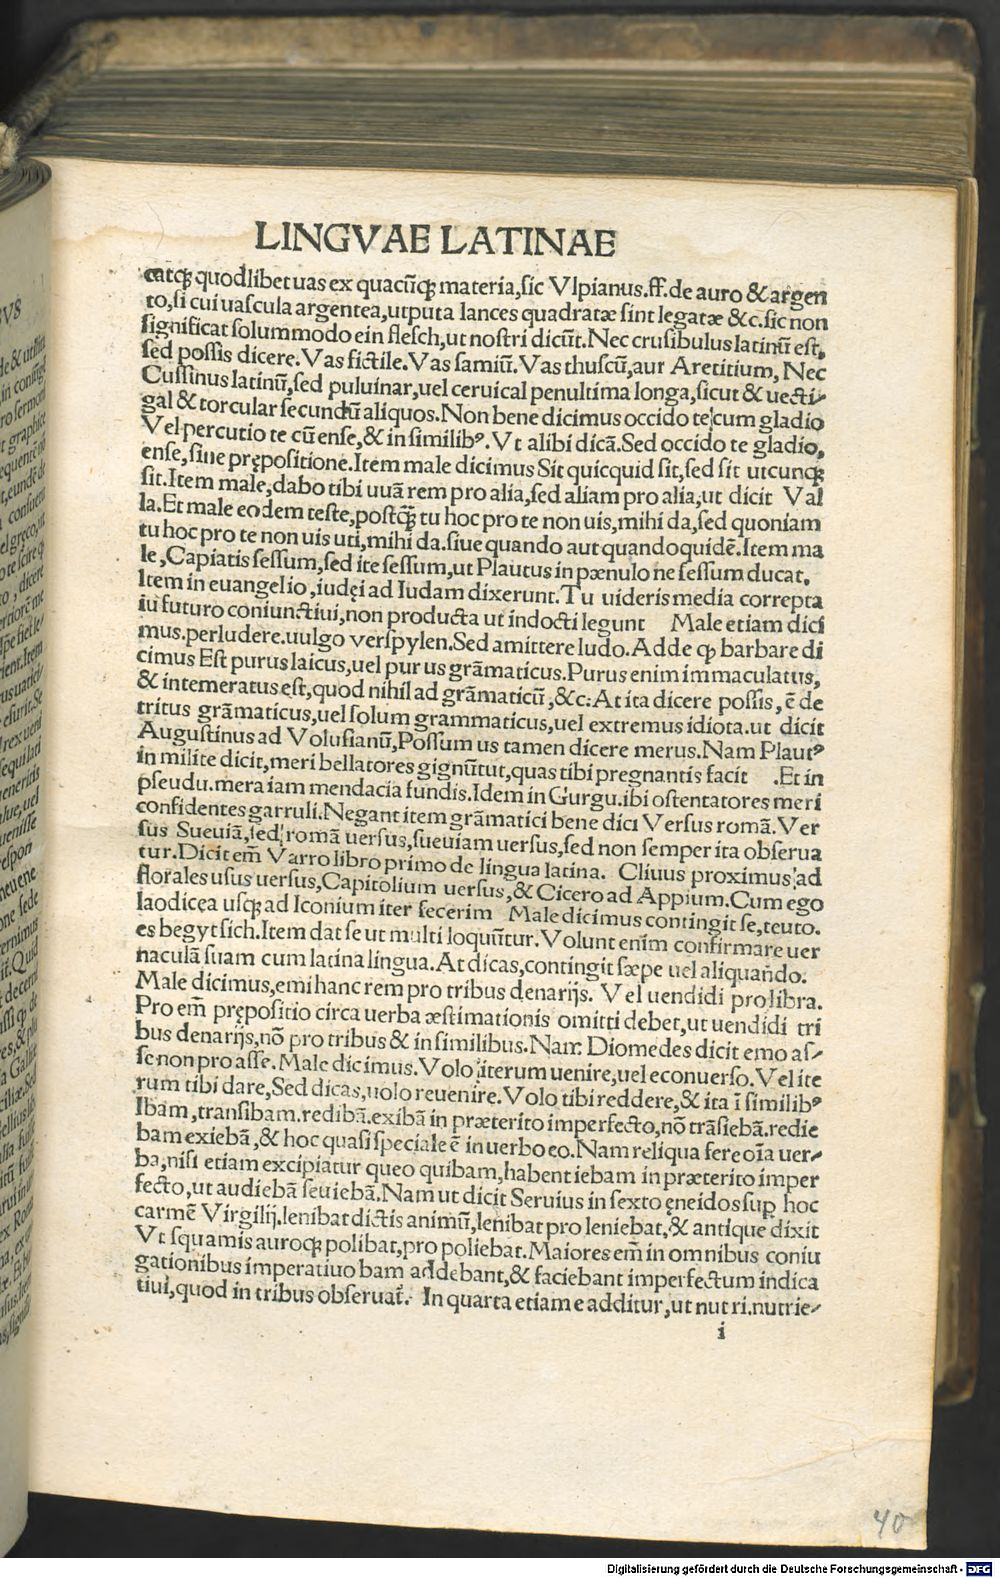 LINGVAE LATINAE
catq; quodlibet uas ex quacūq; materia,sic Vlpianus.ff.de auro & argen
to,si cui uascula argentea,utputa lances quadratæ sint legatæ &c.sic non
significat solummodo ein flesch,ut nostri dicūt.Nec crusibulus latinū est,
sed possis dicere.Vas fictile.Vas samiū.Vas thuscū,aur Aretitium, Nec
Cussinus latinū,sed puluinar,uel ceruical penultima longa,sicut & uecti-
gal & torcular secundū aliquos.Non bene dicimus occido te cum gladio
Vel percutio te cū ense,& in similibꝰ.Vt alibi dicā.Sed occido te gladio,
ense,sine prępositione.Item male dicimus Sit quicquid sit,sed sit utcunq;
sit.Item male,dabo tibi uuā rem pro alia,sed aliam pro alia,ut dicit Val
la.Et male eodem teste,postq̄ tu hoc pro te non uis,mihi da,sed quoniam
tu hoc pro te non uis uti,mihi da.siue quando aut quandoquidē.Item ma
le,Capiatis sessum,sed ite sessum,ut Plautus in pænulo ne sessum ducat.
Item in euangelio,iudęi ad Iudam dixerunt.Tu uideris media correpta
iu futuro coniunctiui,non producta ut indocti legunt Male etiam dici
mus.perludere.uulgo verspylen.Sed amittere ludo.Adde ꝙ barbare di
cimus Est purus laicus,uel pur us grāmaticus.Purus enim immaculatus,
& intemeratus est,quod nihil ad grāmaticū,&c:At ita dicere possis,ē de
tritus grāmaticus,uel solum grammaticus,uel extremus idiota.ut dicit
Augustinus ad Volusianū,Possum us tamen dicere merus.Nam Plautꝰ
in milite dicit,meri bellatores gignūtut,quas tibi pregnantis facit .Et in
pseudu.mera iam mendacia fundis.Idem in Gurgu.ibi ostentatores meri
confidentes garruli.Negant item grāmatici bene dici Versus romā.Ver
sus Sueuiā,sed romā uersus,sueuiam uersus,sed non semper ita obserua
tur.Dicit em̄ Varro libro primo de lingua latina. Cliuus proximus ad
florales usus uersus,Capitolium uersus,& Cicero ad Appium.Cum ego
laodicea usq; ad Iconium iter fecerim Male dicimus contingit se,teuto.
es begyt sich.Item dat se ut multi loquūtur.Volunt enim confirmare uer
naculā suam cum latina lingua.At dicas,contingit sæpe uel aliquando.
Male dicimus,emi hanc rem pro tribus denarijs. Vel uendidi pro libra.
Pro em̄ prępositio circa uerba æstimationis omitti debet,ut uendidi tri
bus denarijs,nō pro tribus & in similibus.Nam Diomedes dicit emo as-
se non pro asse.Male dicimus.Volo iterum uenire,uel econuerso.Vel ite
rum tibi dare,Sed dicas,uolo reuenire.Volo tibi reddere,& ita ī similibꝰ
Ibam,transibam.redibā.exibā in præterito imperfecto,nō trāsiebā.redie
bam exiebā,& hoc quasi speciale ē in uerbo eo.Nam reliqua fere oīa uer-
ba,nisi etiam excipiatur queo quibam,habent iebam in præterito imper
fecto,ut audiebā seuiebā.Nam ut dicit Seruius in sexto ęneidos suꝑ hoc
carmē Virgilij.lenibat dictis animū,lenibat pro leniebat,& antique dixit
Vt squamis auroq; polibat,pro poliebat.Maiores em̄ in omnibus coniu
gationibus imperatiuo bam addebant,& faciebant imperfectum indica
tiui,quod in tribus obseruat̄. In quarta etiam e additur,ut nutri.nutrie-
i
40
Digitalisierung gefördert durch die Deutsche Forschungsgemeinschaft - DFG